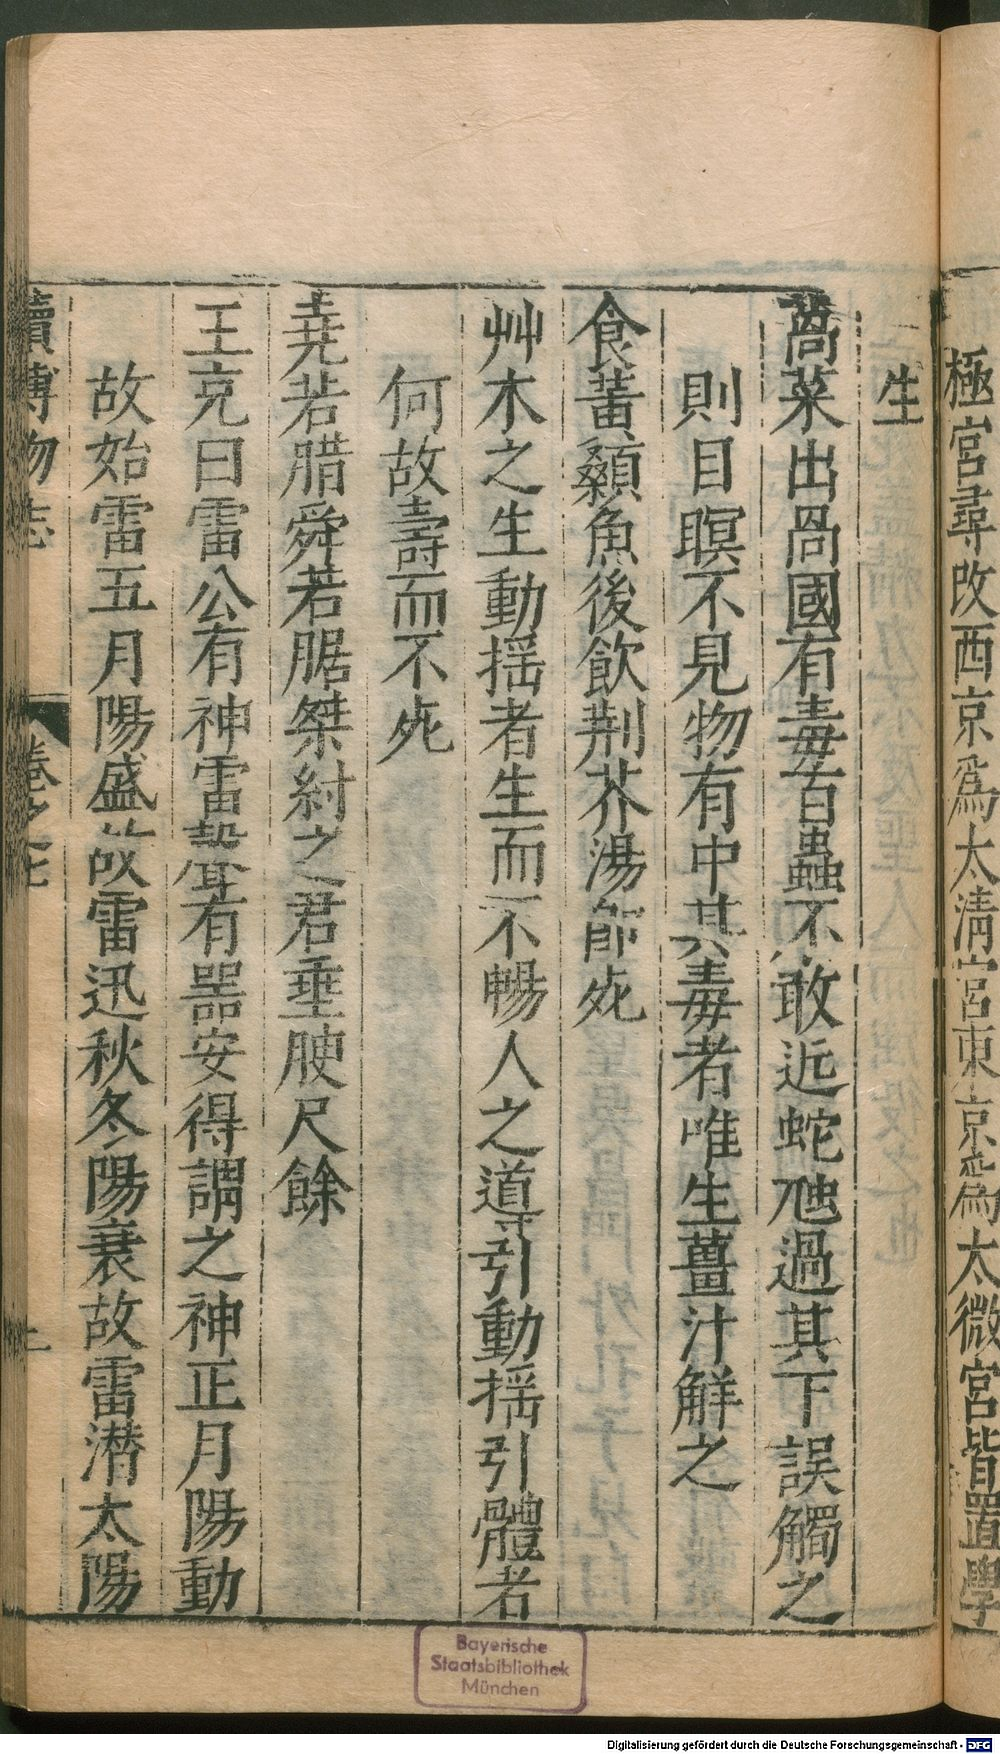 極宮尋改西京爲太清宮東京爲太微宮皆置學
生
萵菜出咼國有毒百蟲不敢近蛇虺過其下誤觸之
則目瞑不見物有中其毒者唯生薑汁解之
食黃顙魚後飲荆芥湯即死
艸木之生動揺者生而不暢人之導引動揺引體者
何故壽而不死
堯若腊舜若腒桀紂之君垂腴尺餘
王充曰雷公有神雷聲有器安得謂之神正月陽動
故始雷五月陽盛故雷迅秋冬陽衰故雷潛太陽
續博物志
卷之七
Bayerische
Staatsbibliothek
München
Digitalisierung gefördert durch die Deutsche Forschungsgemeinschaft - DFG